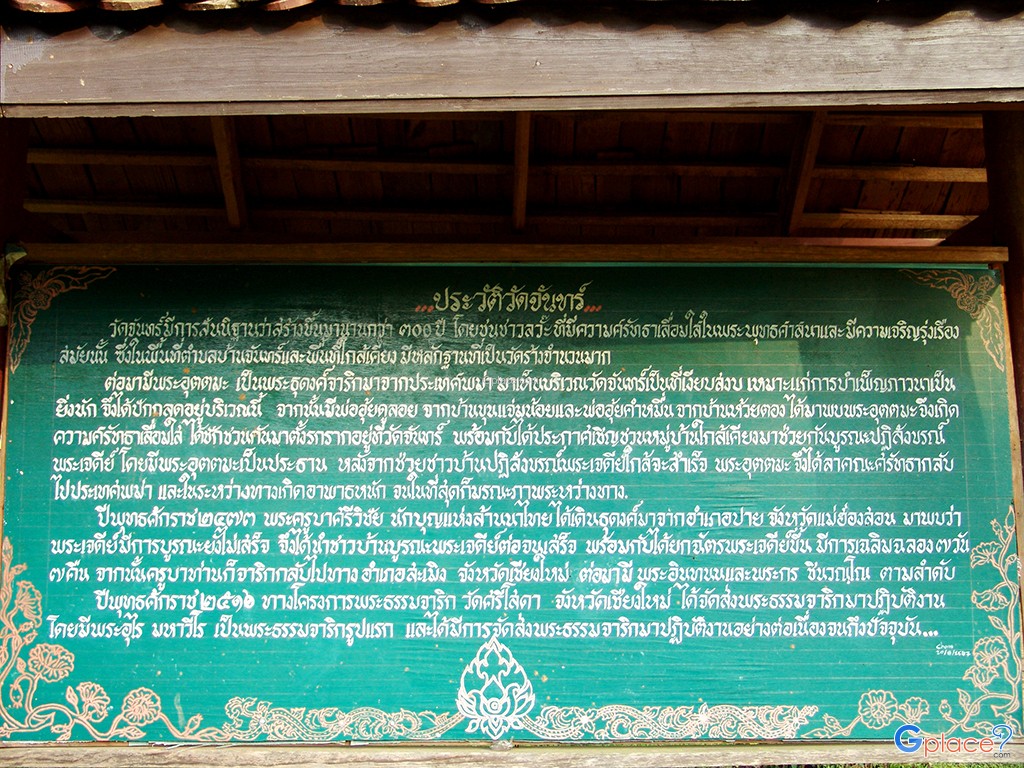 ...ประวัติวัดจันทร์...
วัดจันทร์มีการสันนิฐานว่าสร้างขึ้นมานานกว่า ๓๐๐ ปี โดยชนชาวลวั๊ะ ที่มีความศรัทธาเลื่อมใสในพระพุทธศาสนาและมีความเจริญรุ่งเรือง
สมัยนั้น ซึ่งในพื้นที่ตำบลบ้านจันทร์และพื้นที่ใกล้เคียง มีหลักฐานที่เป็นวัดร้างจำนวนมาก
ต่อมามีพระอุตตมะ เป็นพระธุดงค์จาริกมาจากประเทศพม่า มาเห็นบริเวณวัดจันทร์เป็นที่เงียบสงบ เหมาะแก่การบำเพ็ญภาวนาเป็น
ยิ่งนัก จึงได้ปักกลดอยู่บริเวณนี้ จากนั้นมีพ่อฮุ่ยดูลอย จากบ้านขุนแจ่มน้อยและพ่อฮุ่ยคำหมื่น จากบ้านห้วยตอง ได้มาพบพระอุตตมะจึงเกิด
ความศรัทธาเลื่อมใส ได้ชักชวนกันมาตั้งรกรากอยู่ที่วัดจันทร์ พร้อมกับได้ประกาศเชิญชวนหมู่บ้านใกล้เคียงมาช่วยกันบูรณะปฏิสังขรณ์
พระเจดีย์ โดยมีพระอุตตมะเป็นประธาน หลังจากช่วยชาวบ้านปฏิสังขรณ์พระเจดีย์ใกล้จะสำเร็จ พระอุตตมะ จึงได้ลาคณะศรัทธากลับ
ไปประเทศพม่า และในระหว่างทางเกิดอาพาธหนัก จนในที่สุดก็มรณะภาพระหว่างทาง.
ปีพุทธศักราช ๒๔๗๓ พระครูบาศรีวิชัย นักบุญแห่งล้านนาไทย ได้เดินธุดงค์มาจากอำเภอปาย จังหวัดแม่ฮ่องสอน มาพบว่า
พระเจดีย์มีการบูรณะยังไม่เสร็จ จึงได้นำชาวบ้านบูรณะพระเจดีย์ต่อจนเสร็จ พร้อมกับได้ยกฉัตรพระเจดีย์ขึ้น มีการเฉลิมฉลอง ๗ วัน
๗ คืน จากนั้นครูบาท่านก็จาริกกลับไปทางอำเภอสะเมิง จังหวัดเชียงใหม่ ต่อมามี พระอินทนนและพระกร ชินวณฺโณ ตามลำดับ
ปีพุทธศักราช ๒๕๑๖ ทางโครงการพระธรรมจาริก วัดศรีโสดา จังหวัดเชียงใหม่ ได้จัดส่งพระธรรมจาริกมาปฏิบัติงาน
โดยมีพระอุไร มหาวีโร เป็นพระธรรมจาริกรูปแรก และได้มีการจัดส่งพระธรรมจาริกมาปฏิบัติงานอย่างต่อเนื่องจนถึงปัจจุบัน...
Gplace?.com